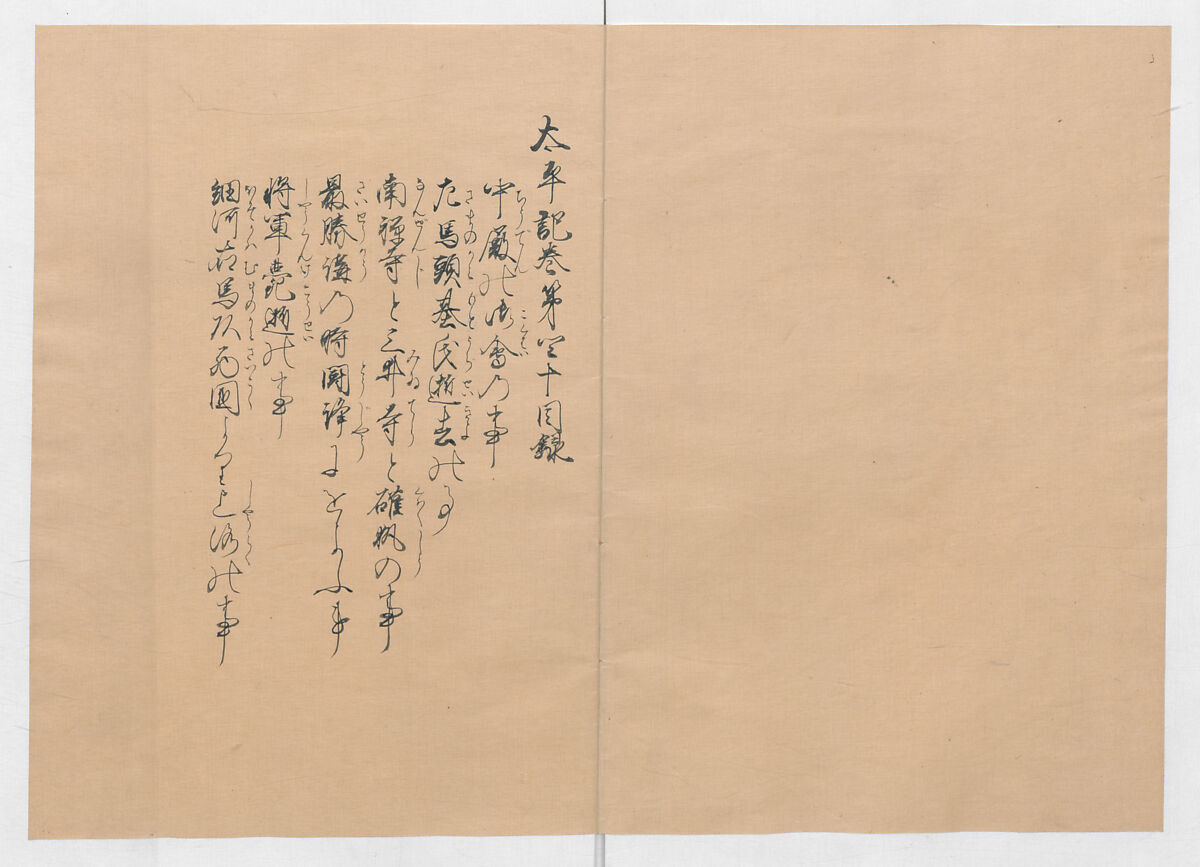 太平記巻第四十目録
中殿の御會の事
左馬頭基氏逝去の事
南禅寺と三井寺と確執の事
最勝講の時闘諍にをよふ事
将軍薨逝の事
細河右馬頭西國より上洛の事